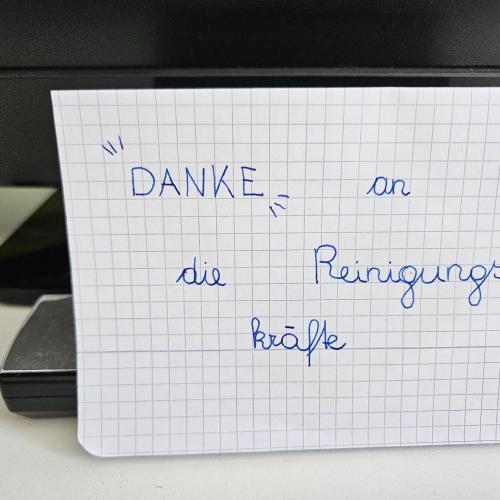 DANKE an
die Reinigungs
kräfte